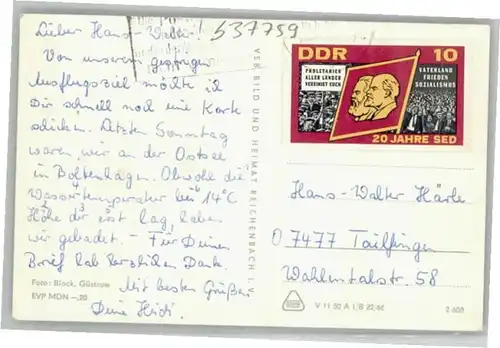 537759
Lieber Hans-Walter!
Von unserem gestrigen
Ausflugsziel möchte ich
Dir schnell noch eine Karte
schicken. Letzten Sonntag
waren wir an der Ostsee
in Boltenhagen. Obwohl die
Wassertemperatur bei 14°C
Höhe erst lag, haben
wir gebadet. - Für Deinen
Brief hab herzlichen Dank.
Mit besten Grüßen
Deine Heidi.
Foto: Block, Güstrow
EVP MDN -,20
VEB BILD UND HEIMAT REICHENBACH I. V.
DDR 10
PROLETARIER
ALLER LÄNDER
VEREINIGT EUCH
VATERLAND
FRIEDEN
SOZIALISMUS
20 JAHRE SED
Hans-Walter Härle
7477 Tailfingen
Wahlenstalstr. 58
V 11 50 A 1/B
2 600